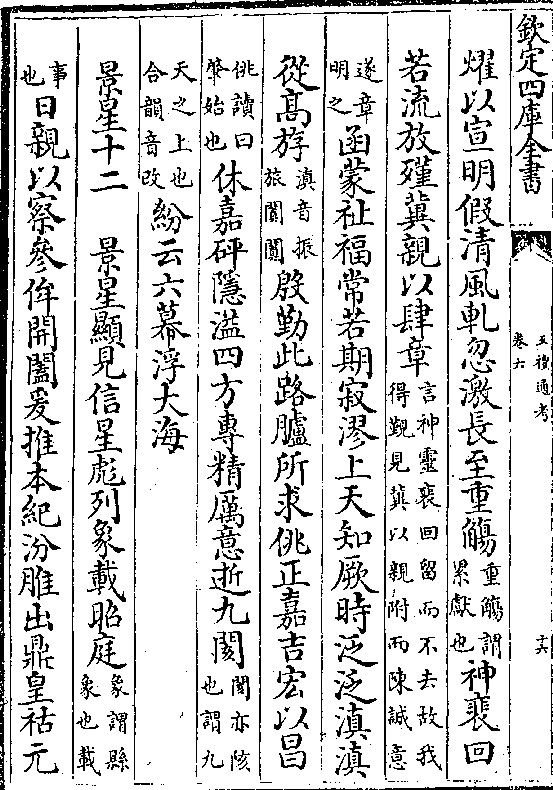 欽定四庫全書
五禮通考
卷六
十六
燿以宣明假清風軋忽激長至重觴重觴謂累獻也神裴回
若流放殣冀親以肆章言神靈裴回留而不去故我得覲見冀以親附而陳誠意
遂章明之函蒙祉福常若期寂漻上天知厥時泛泛滇滇
從髙斿滇音振旅闐闐殷勤此路臚所求佻正嘉吉宏以昌
佻讀曰肇始也休嘉砰隱溢四方專精厲意逝九閡閡亦陔也謂九
天之上也合韻音改紛云六幕浮大海
景星十二　景星顯見信星彪列象載昭庭象謂縣象也載
事也日親以察參侔開闔爰推本紀汾脽出鼎皇祜元